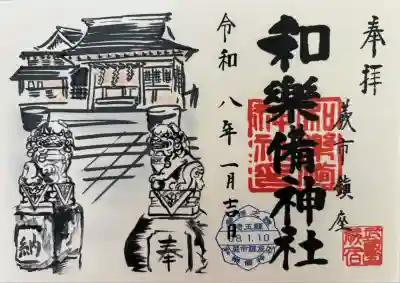 奉拝
蕨市鎮座
和樂備神社
令和八年一月吉日
8.1.10
奉
納